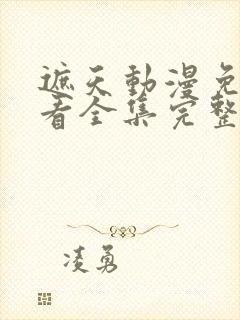 遮天動漫免
看全集完整
凌勇